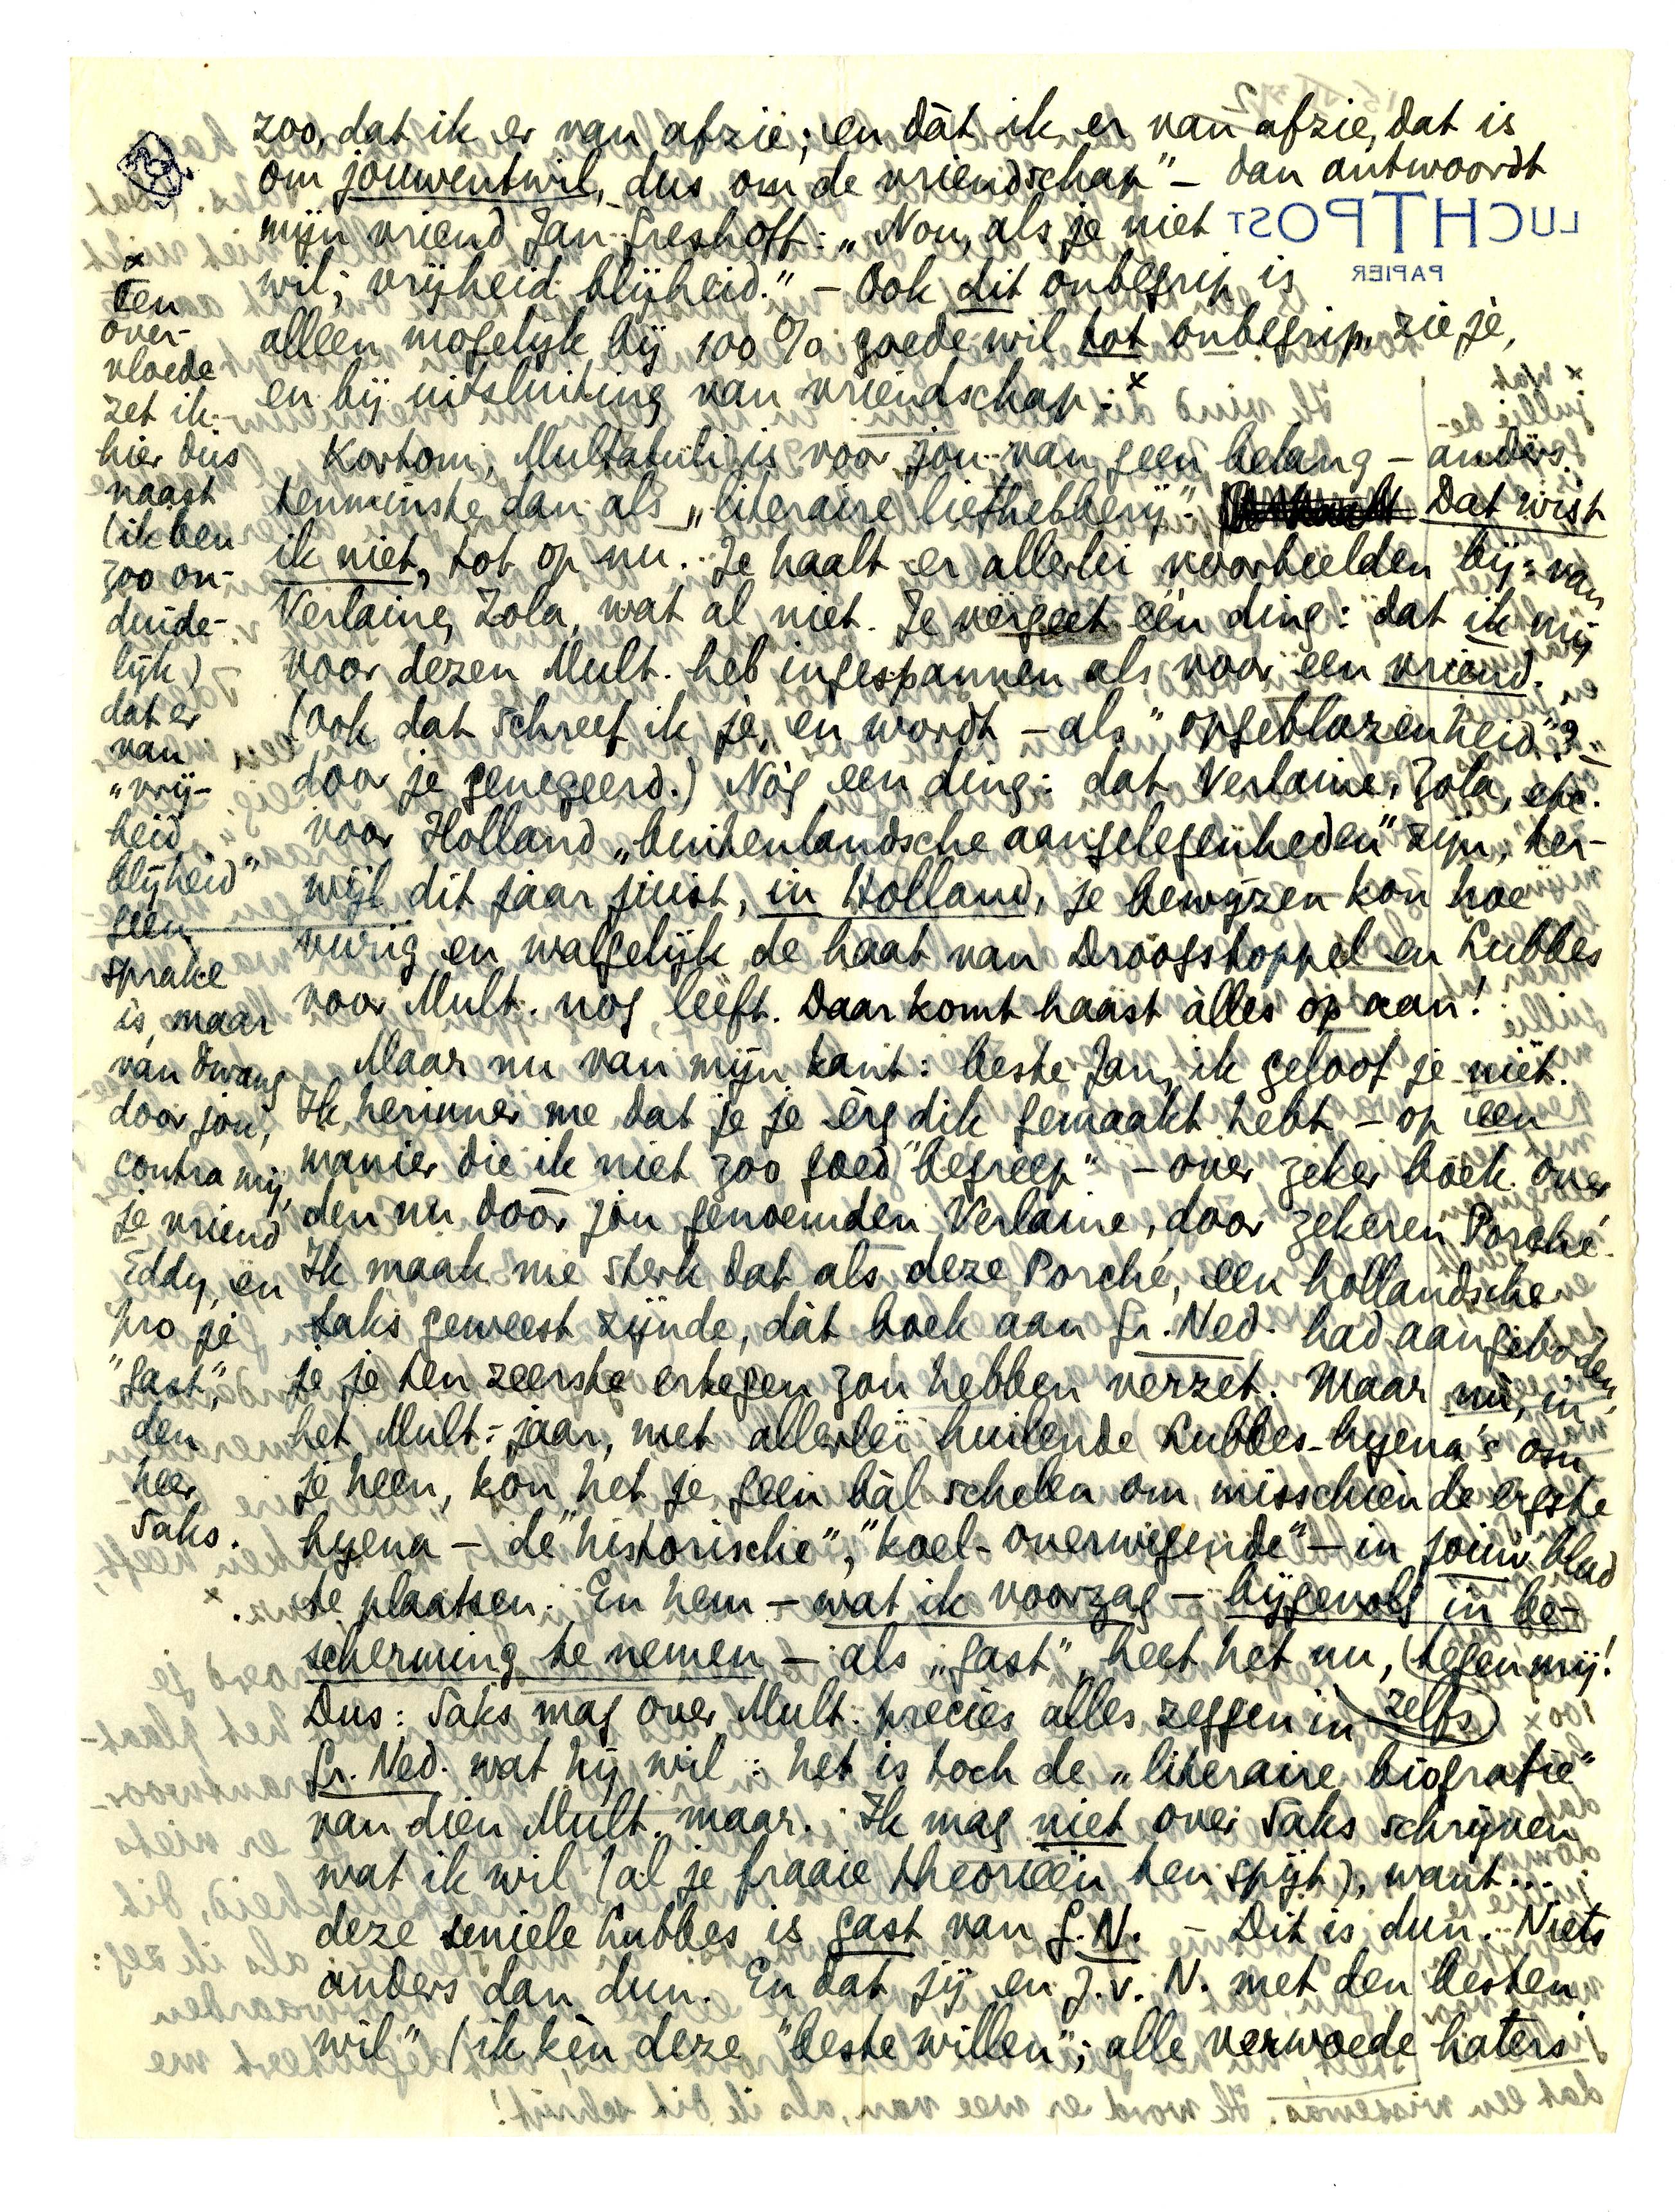 zoo, dat ik er van afzie; en dàt ik er van afzie, dat is
om jouwentwil, dus om de vriendschap" – dan antwoordt
mijn vriend Jan Greshoff: „Nou, als je niet
wil; vrijheid blijheid." – Ook dit onbegrip is
alleen mogelijk bij 100 % goede wil tot onbegrip, zie je,
en bij uitsluiting van vriendschap. x
Kortom, Multatuli is voor jou van geen belang – anders
tenminste dan als „literaire liefhebberij". Dat wist
ik niet, tot op nu. Je haalt er allerlei voorbeelden bij: van
Verlaine, Zola, wat al niet. Je vergeet één ding: dat ik mij
voor dezen Mult. heb ingespannen als voor een vriend.
(Ook dat schreef ik je, en wordt – als "opgeblazenheid"? –
door je genegeerd.) Nòg een ding: dat Verlaine, Zola, etc.
voor Holland „buitenlandsche aangelegenheden" zijn, ter-
wijl dit jaar juist, in Holland, je bewijzen kon hoe
vurig en walgelijk de haat van Droogstoppel en Lubbes
voor Mult. nog leeft. Daar komt haast àlles op aan!
Maar nu van mijn kant: beste Jan, ik geloof je niét.
Ik herinner me dat je je èrg dik gemaakt hebt – op een
manier die ik niet zoo goed "begreep" – over zeker boek over
den nu dóór jou genoemden Verlaine, door zekeren Porché.
Ik maak me sterk dat als deze Porché, een hollandsche
Saks geweest zijnde, dàt boek aan Gr. Ned. had aangeboden,
je je ten zeerste ertegen zou hebben verzet. Maar nù, in
het Mult.-jaar, met allerlei huilende Lubbes-hyena's om
je heen, kon het je geen bàl schelen om misschien de ergste
hyena – de "historische", "koel-overwegende" – in jouw blad
te plaatsen. En hem – wat ik voorzag – bijgevolg in be-
scherming te nemen – als „gast", heet het nu, (tegen mij!
Dus: Saks mag over Mult. precies alles zeggen in zelfs
Gr. Ned. wat hij wil: het is toch de „literaire biografie"
van dien Mult. maar. Ik mag niet over Saks schrijven
wat ik wil (al je fraaie theorieën ten spijt), want...
deze seniele Lubbes is gast van G.N. – Dit is dun. Niets
anders dan dun. En dat jij en J.v.N. met den besten
wil" (ik kèn deze "beste willen"; alle verwoede haters
x
Ten
over-
vloede
zet ik
hier dus
naast
(ik ben
zoo on-
duide-
lijk)
dat er
van
„vrij-
heid
blijheid"
geen
sprake
is, maar
van dwang
door jou,
contra mij,
je vriend
Eddy, en
pro je
"gast",
den
heer
Saks.
x
LUCHTPOST
PAPIER